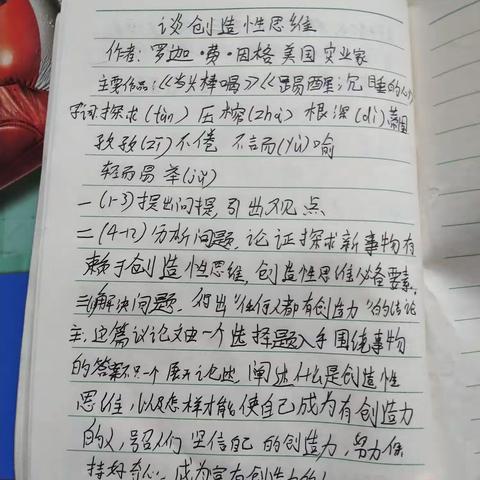 谈创造性思维
作者：罗迦·费·因格 美国 实业家
主要作品：《当头棒喝》《踢醒沉睡的心》
字词：探求(tàn) 压榨(zhà) 根深(dì)蒂固
孜孜(zī)不倦 不言而(yù)喻
轻而易举(jǔ)
一(1-3)提出问提，引出观点
二(4-12)分析问题，论证探求新事物有
赖于创造性思维，创造性思维必备要素。
三解决问题，得出“任何人都有创造力”的结论
主：这篇议论文由一个选择题入手围绕事物
的答案不只一个展开论述，阐述什么是创造性
思维，以及怎样才能使自己成为有创造力
的人，号召人们坚信自己的创造力，努力保
持好奇心，成为富有创造力的人